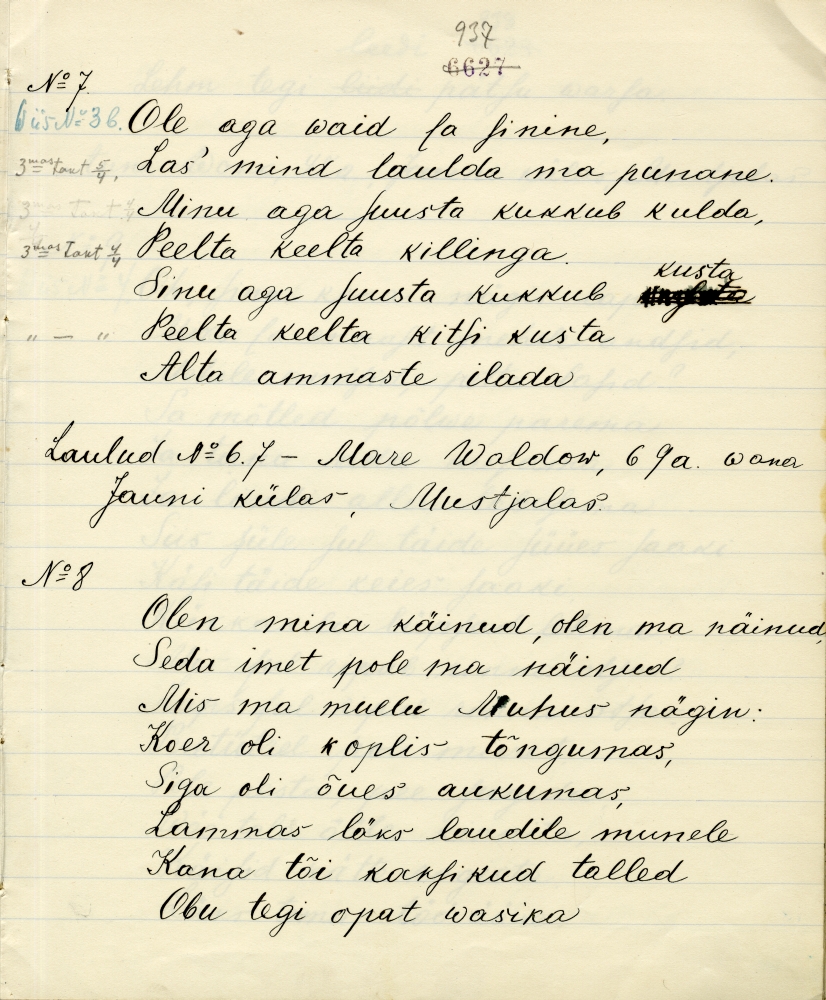 937
6627
No 7.
Viis No 36. Ole aga waid sa sinine,
3mas Takt 5/4, Las' mind laulda ma punane.
3mas Takt 4/4 Minu aga suusta kukkub kulda,
3mas Takt 4/4 Peelta keelta killinga.
kusta
Sinu aga suusta kukkub
" — " Peelta keelta kitsi kusta
Alta ammaste ilada
Laulud No 6.7 – Mare Waldow, 69a. wana
Jauni külas, Mustjalas.
No 8
Olen mina käinud, olen ma näinud,
Seda imet pole ma näinud
Mis ma mullu Muhus nägin:
Koer oli koplis tõngumas,
Siga oli õues aukumas,
Lammas läks laudile munele
Kana tõi kaksikud talled
Obu tegi opat wasika